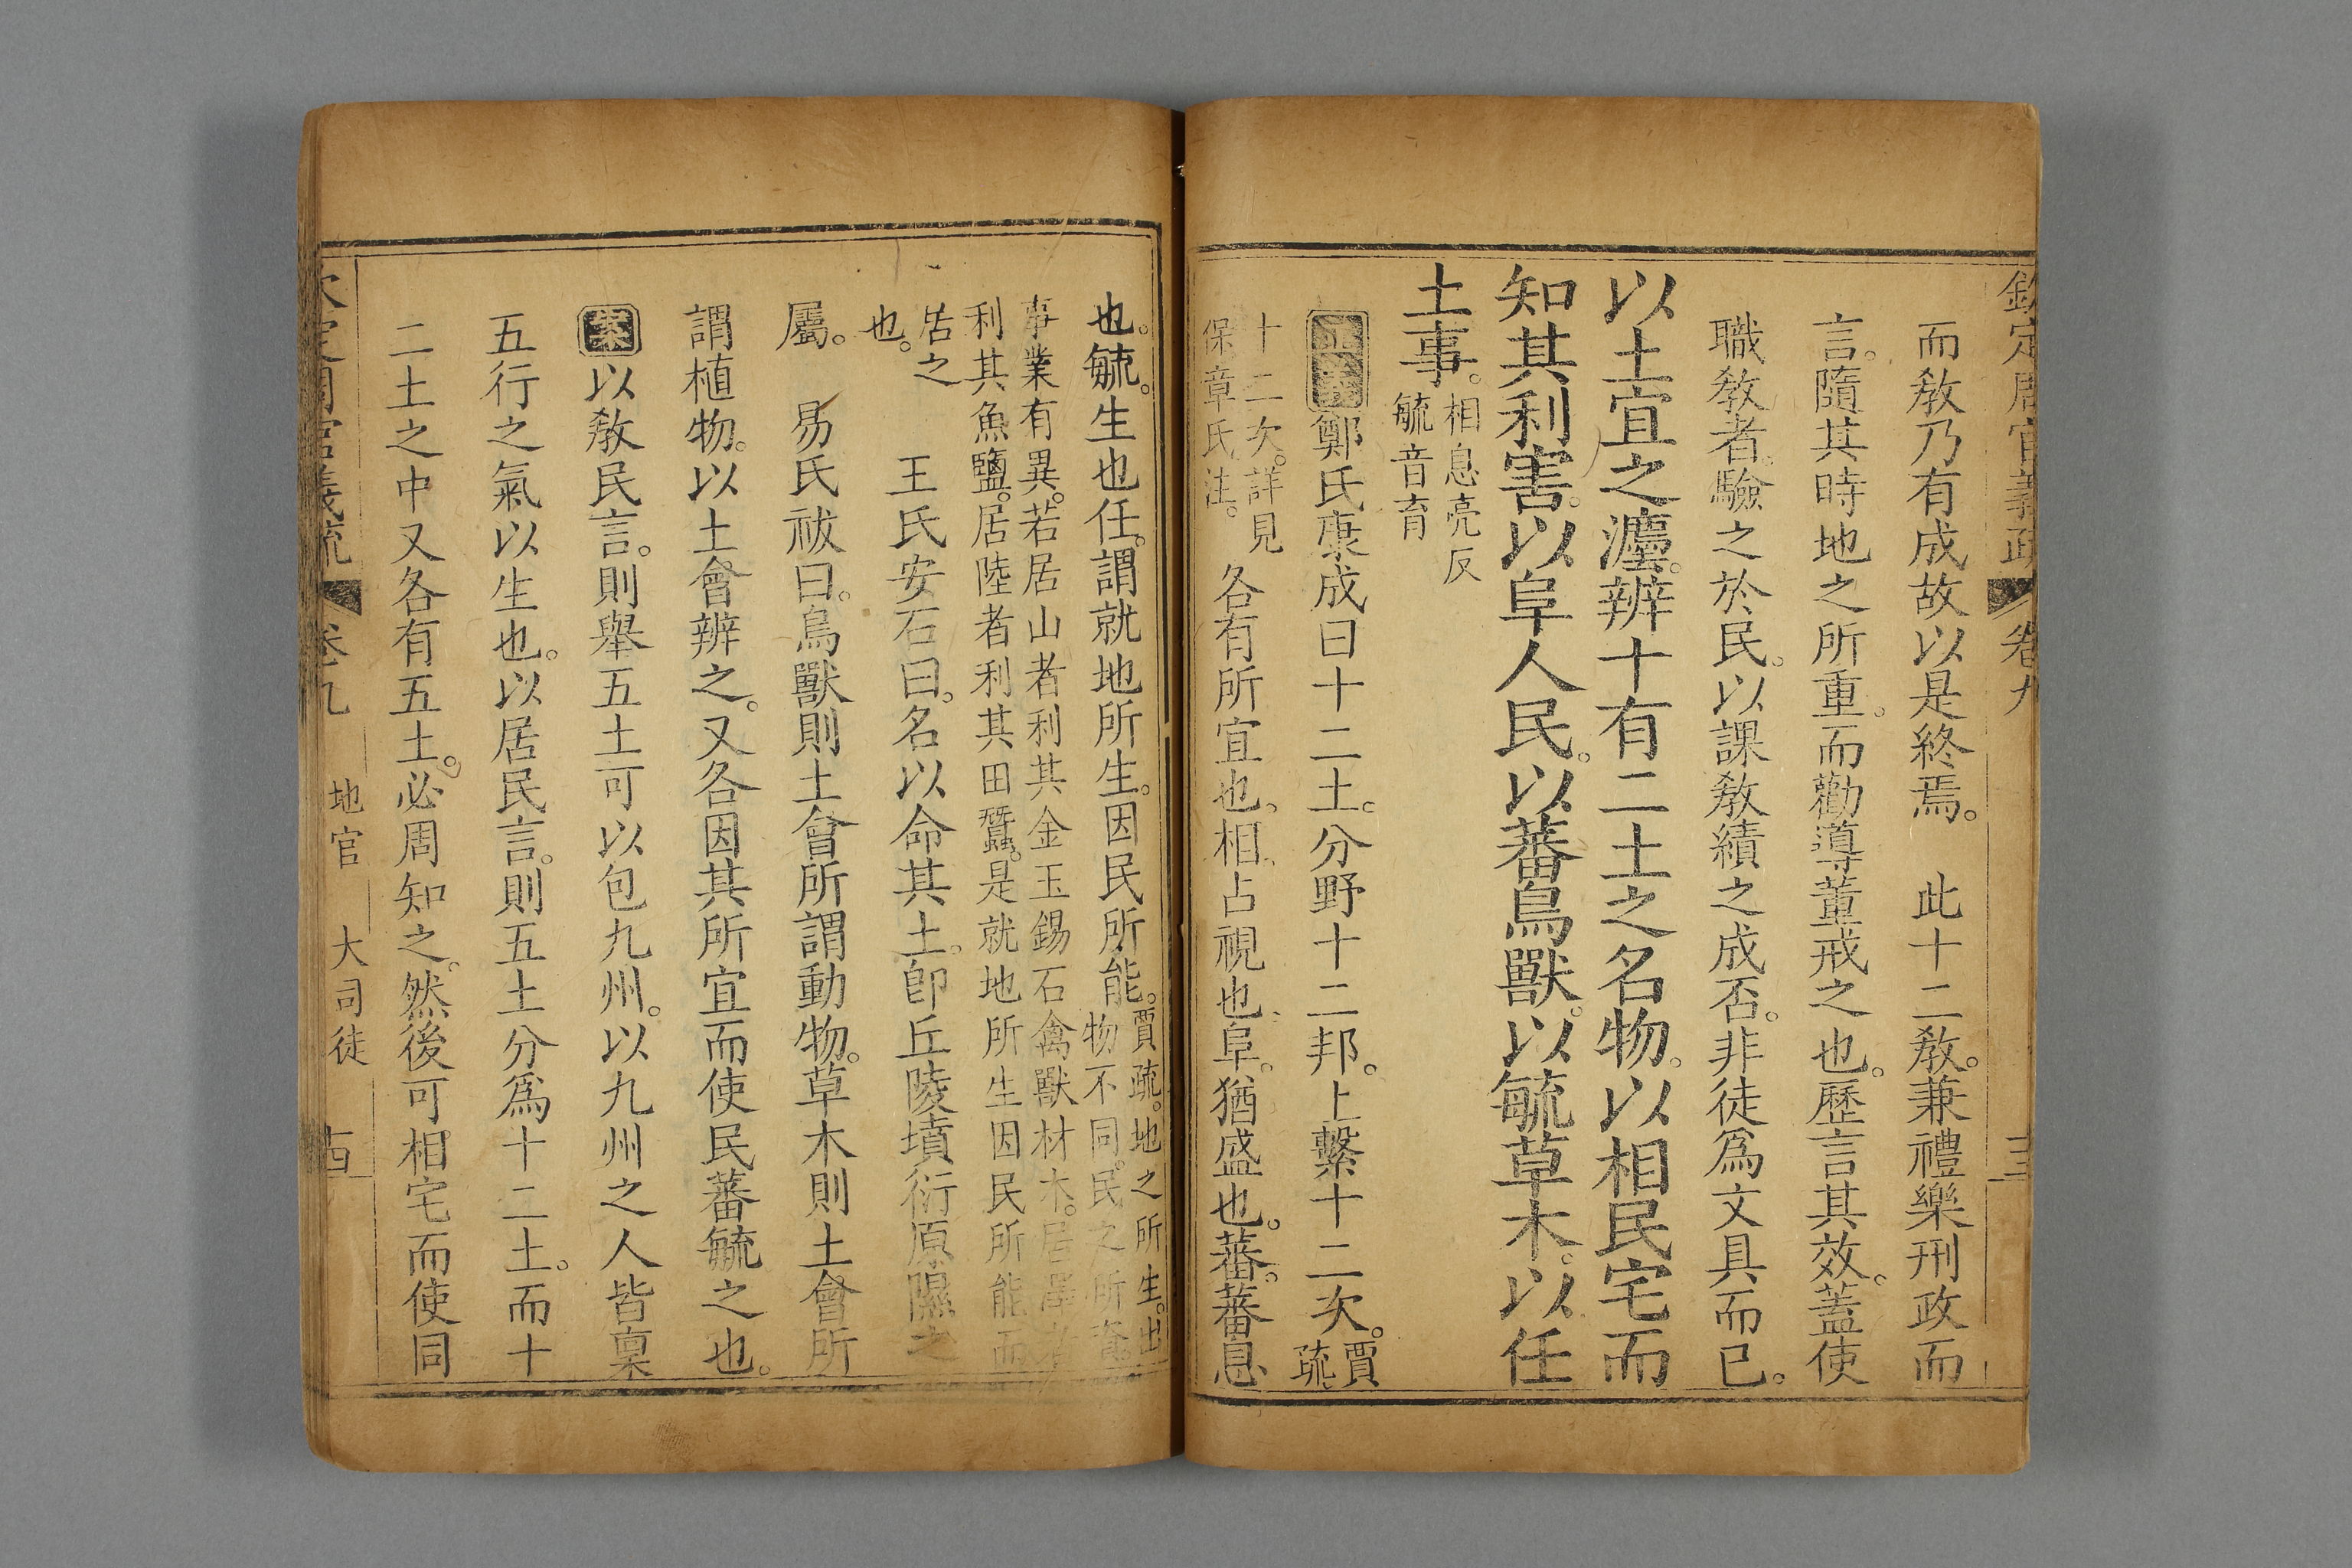 欽定周官義疏 卷九 三
而敎乃有成故以是終焉。 此十二敎。兼禮樂刑政而
言。隨其時地之所重。而勸導董戒之也。歷言其效。蓋使
職敎者。驗之於民。以課敎績之成否。非徒爲文具而已。
以土宜之灋。辨十有二土之名物。以相民宅。而
知其利害。以阜人民。以蕃鳥獸。以毓草木。以任
土事。
相息亮反
毓音育
正義鄭氏康成曰十二土。分野十二邦。上繫十二次。
賈
疏
十二次。詳見
保章氏注。
各有所宜也。相。占視也。阜。猶盛也。蕃。蕃息
也。毓。生也。任。謂就地所生。因民所能。
賈疏。地之所生。出
物不同。民之所
事業有異。若居山者利其金玉錫石禽獸材木。居
利其魚鹽。居陸者利其田蠶。是就地所生因民所能而
佸之
也。
王氏安石曰。名以命其土。卽丘陵墳衍原隰之
屬。 易氏祓曰。鳥獸則土會所謂動物。草木則土會所
謂植物。以土會辨之。又各因其所宜而使民蕃毓之也。
案以敎民言。則舉五土可以包九州。以九州之人皆稟
五行之氣以生也。以居民言。則五土分爲十二土。而十
二土之中又各有五土。必周知之。然後可相宅而使同
欽定周官義疏 卷九 地官 大司徒